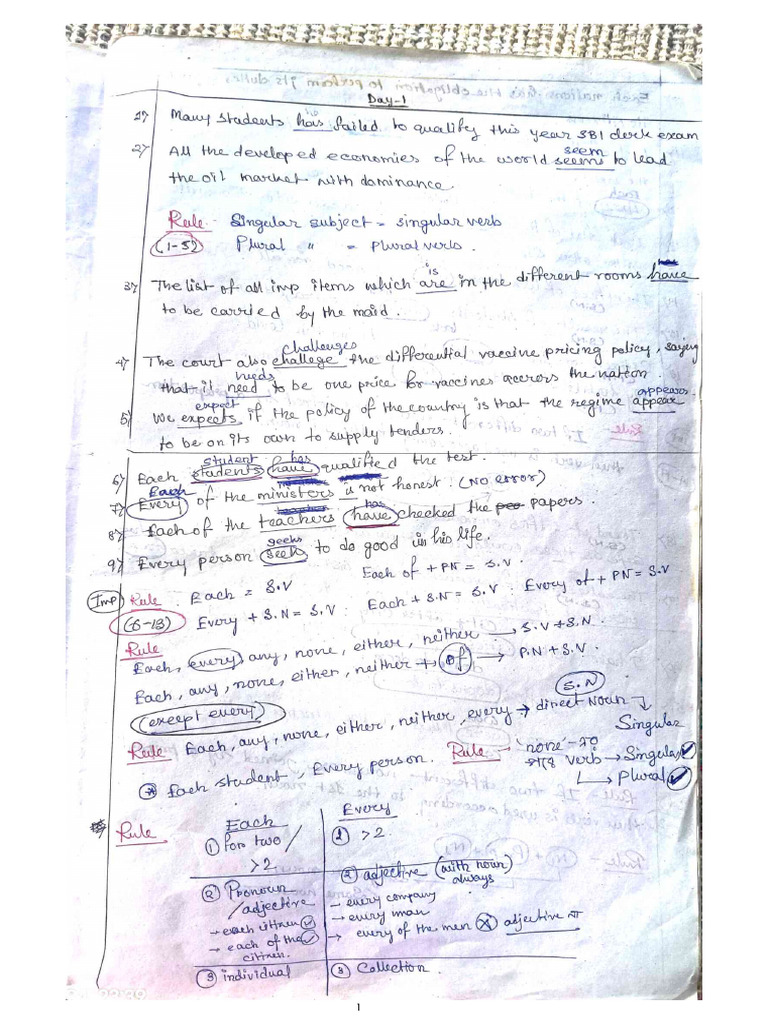 Day-1
1) Many students has failed to qualify this year SBI clerk exam
2) All the developed economies of the world seems to lead
seem
the oil market with dominance.
Rule - Singular subject = singular verb
(1-5) Plural " = Plural verb.
is
3) The list of all imp items which are in the different rooms have
to be carried by the maid.
challenges
4) The court also challege the differential vaccine pricing policy, saying
needs
that it need to be one price for vaccines accross the nation.
expect appears
5) We expects if the policy of the country is that the regime appear
to be on its own to supply tenders.
student has
6) Each students have qualified the test.
Each
7) Every of the ministers is not honest. (NO error)
has
8) Each of the teachers have checked the papers.
seeks
9) Every person seek to do good in his life.
Imp Rule Each = S.V Each of + PN = S.V.
(6-13) Every + S.N = S.V. Each + S.N = S.V. Every of + PN = S.V
Rule
Each, every, any, none, either, neither → S.V + S.N.
Each, any, none, either, neither + of → P.N + S.V.
(except every) S.N
Rule Each, any, none, either, neither, every → direct Noun → Singular
Rule - 'none' - verb → Singular
→ Plural
Each student, Every person.
Rule
Each Every
① for two / >2 ① >2.
② Pronoun /adjective ② adjective (with noun) always
→ each citizen → every company
→ each of the citizen. → every man
→ every of the men ✗ adjective
③ individual ③ Collection.
1